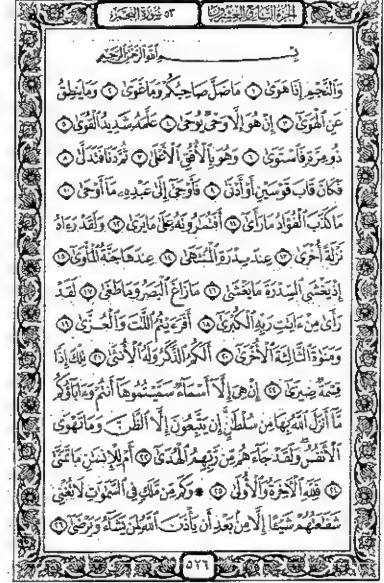 الجزء السابع والعشرون ٥٣ سورة النجم
بِسْمِ اللَّهِ الرَّحْمَٰنِ الرَّحِيمِ
وَالنَّجْمِ إِذَا هَوَىٰ ١ مَا ضَلَّ صَاحِبُكُمْ وَمَا غَوَىٰ ٢ وَمَا يَنطِقُ
عَنِ الْهَوَىٰ ٣ إِنْ هُوَ إِلَّا وَحْيٌ يُوحَىٰ ٤ عَلَّمَهُ شَدِيدُ الْقُوَىٰ ٥
ذُو مِرَّةٍ فَاسْتَوَىٰ ٦ وَهُوَ بِالْأُفُقِ الْأَعْلَىٰ ٧ ثُمَّ دَنَا فَتَدَلَّىٰ ٨
فَكَانَ قَابَ قَوْسَيْنِ أَوْ أَدْنَىٰ ٩ فَأَوْحَىٰ إِلَىٰ عَبْدِهِ مَا أَوْحَىٰ ١٠
مَا كَذَبَ الْفُؤَادُ مَا رَأَىٰ ١١ أَفَتُمَارُونَهُ عَلَىٰ مَا يَرَىٰ ١٢ وَلَقَدْ رَءَاهُ
نَزْلَةً أُخْرَىٰ ١٣ عِندَ سِدْرَةِ الْمُنتَهَىٰ ١٤ عِندَهَا جَنَّةُ الْمَأْوَىٰ ١٥
إِذْ يَغْشَى السِّدْرَةَ مَا يَغْشَىٰ ١٦ مَا زَاغَ الْبَصَرُ وَمَا طَغَىٰ ١٧ لَقَدْ
رَأَىٰ مِنْ ءَايَاتِ رَبِّهِ الْكُبْرَىٰ ١٨ أَفَرَءَيْتُمُ اللَّاتَ وَالْعُزَّىٰ ١٩
وَمَنَوٰةَ الثَّالِثَةَ الْأُخْرَىٰ ٢٠ أَلَكُمُ الذَّكَرُ وَلَهُ الْأُنثَىٰ ٢١ تِلْكَ إِذًا
قِسْمَةٌ ضِيزَىٰ ٢٢ إِنْ هِيَ إِلَّا أَسْمَاءٌ سَمَّيْتُمُوهَا أَنتُمْ وَءَابَاؤُكُم
مَّا أَنزَلَ اللَّهُ بِهَا مِن سُلْطَانٍ إِن يَتَّبِعُونَ إِلَّا الظَّنَّ وَمَا تَهْوَى
الْأَنفُسُ وَلَقَدْ جَاءَهُم مِّن رَّبِّهِمُ الْهُدَىٰ ٢٣ أَمْ لِلْإِنسَانِ مَا تَمَنَّىٰ
٢٤ فَلِلَّهِ الْآخِرَةُ وَالْأُولَىٰ ٢٥ ۞ وَكَم مِّن مَّلَكٍ فِي السَّمَاوَاتِ لَا تُغْنِي
شَفَاعَتُهُمْ شَيْئًا إِلَّا مِن بَعْدِ أَن يَأْذَنَ اللَّهُ لِمَن يَشَاءُ وَيَرْضَىٰ ٢٦
٥٢٦